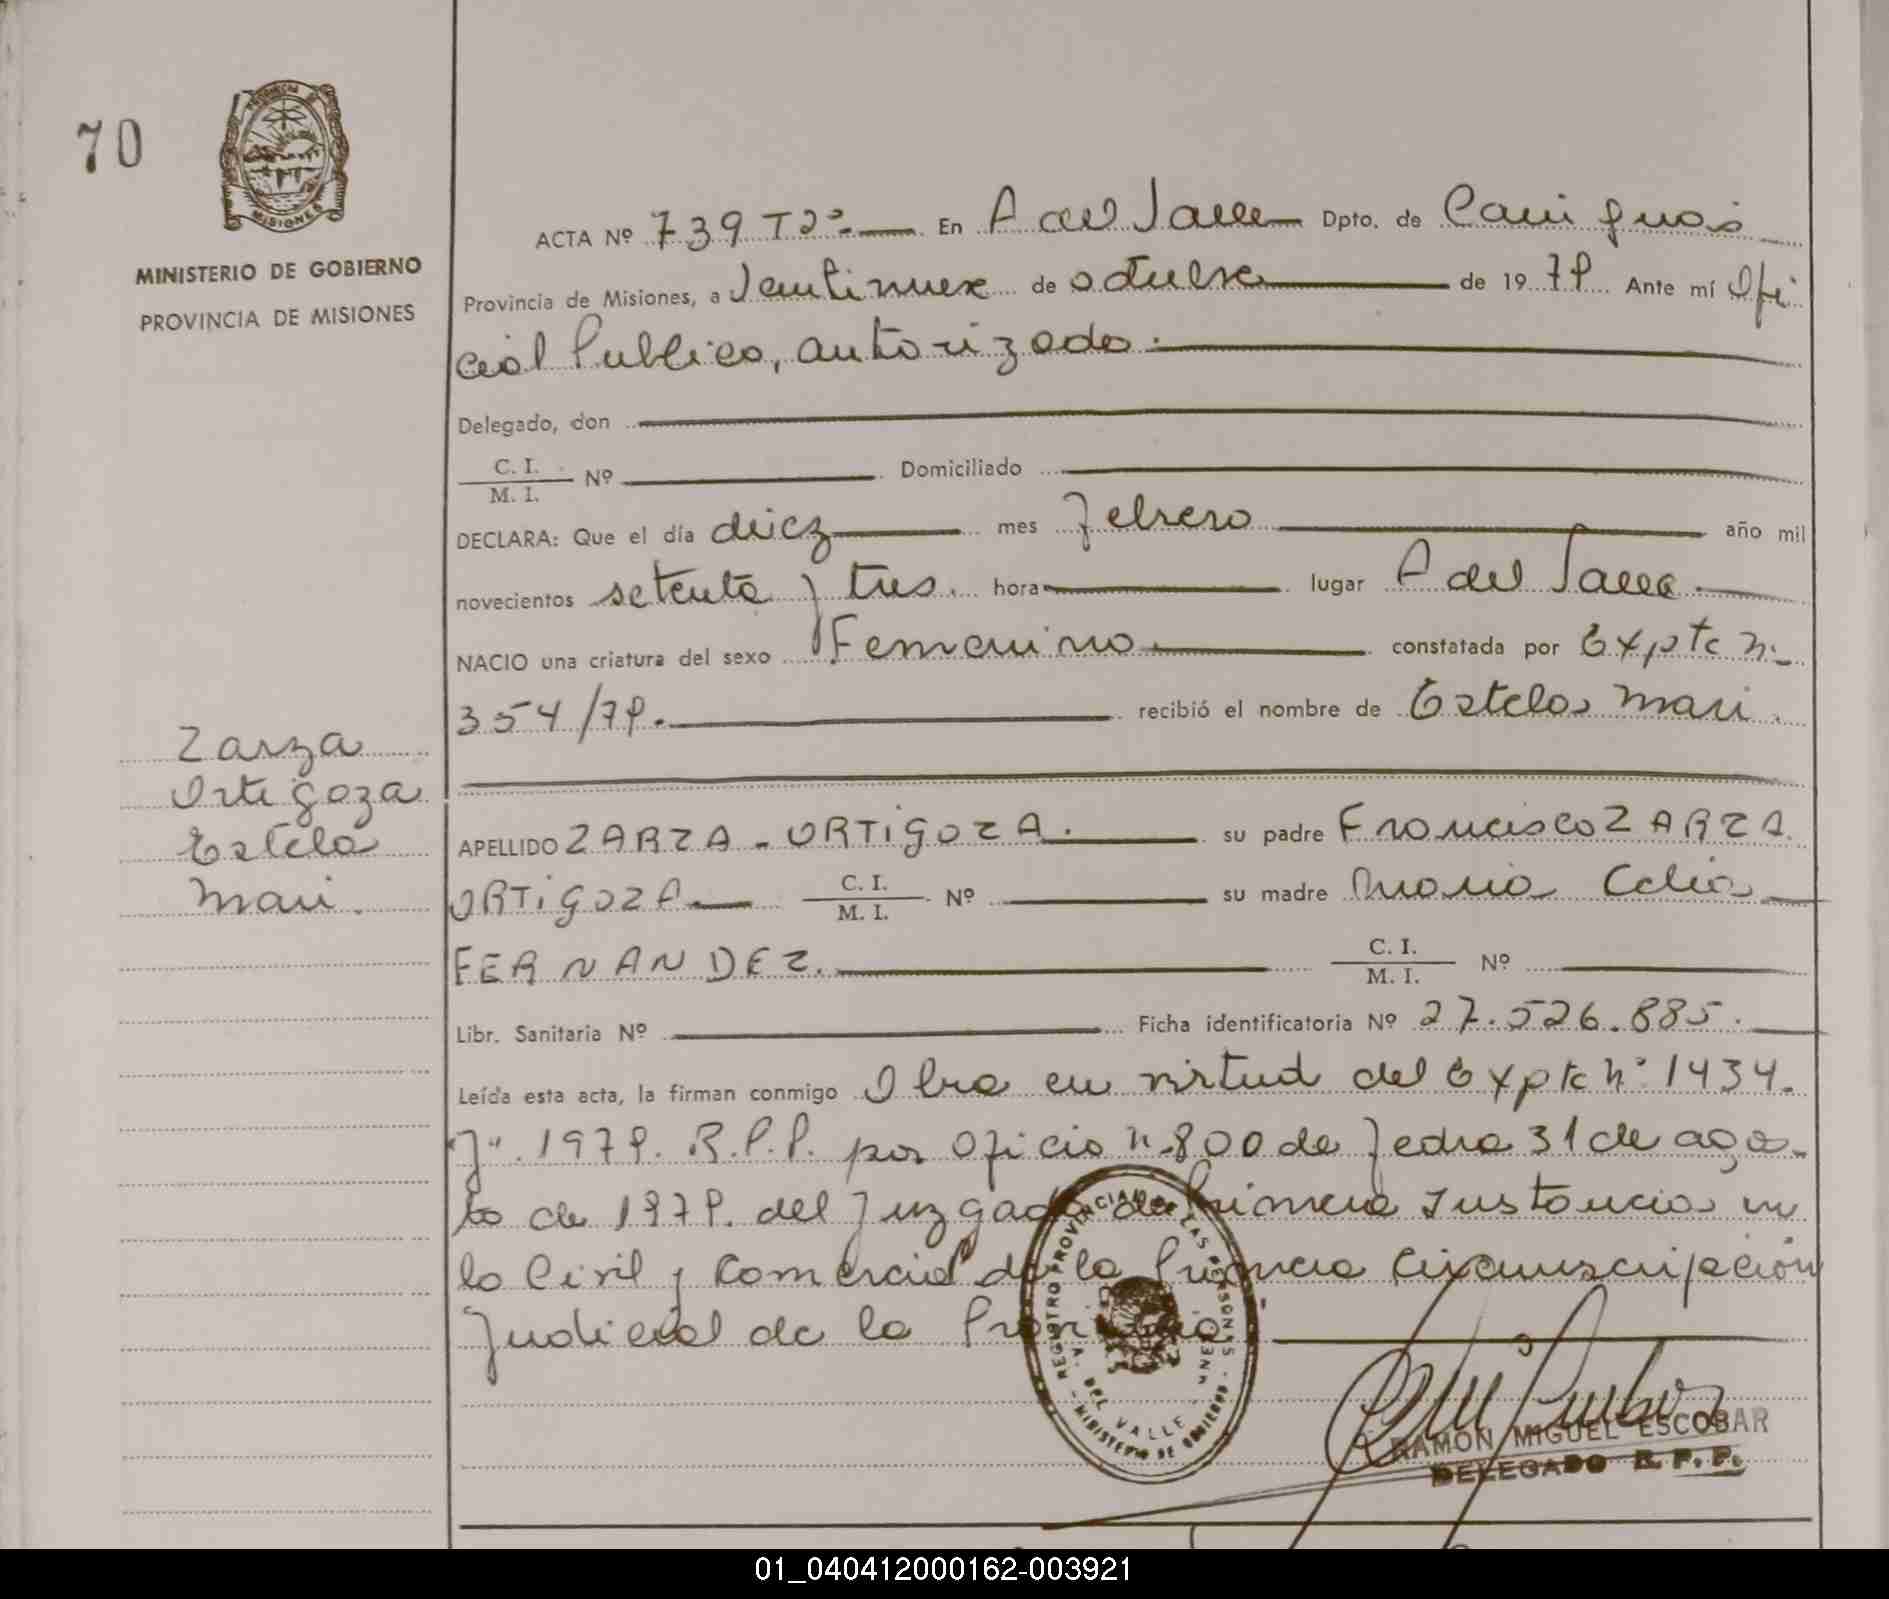 70
PROVINCIA DE
MISIONES
MINISTERIO DE GOBIERNO
PROVINCIA DE MISIONES
ACTA Nº 739 Tº 2º En A del Valle Dpto. de Cainguás
Provincia de Misiones, a Veintinueve de octubre de 1979 Ante mí Ofi
cial Publico, autorizado.
Delegado, don
C. I.
M. I. Nº Domiciliado
DECLARA: Que el día diez mes febrero año mil
novecientos setenta y tres. hora lugar A del Valle
NACIO una criatura del sexo Femenino constatada por Expte n:
354/79. recibió el nombre de Estela Mari.
Zarza
Ortigoza
Estela
Mari.
APELLIDO ZARZA - ORTIGOZA. su padre Francisco ZARZA
ORTIGOZA C. I. M. I. Nº su madre Maria Celia
FERNANDEZ. C. I. M. I. Nº
Libr. Sanitaria Nº Ficha identificatoria Nº 27.526.885.
Leída esta acta, la firman conmigo Obra en virtud del Expte n° 1434.
"J". 1979. R.P.P. por Oficio n° 800 de fecha 31 de agos-
to de 1979. del Juzgado de Primera Instancia en
lo Civil y Comercial de la Primera Circunscripción
Judicial de la Provincia
REGISTRO PROVINCIAL DE LAS PERSONAS
A. DEL VALLE
MINISTERIO DE GOBIERNO
RAMON MIGUEL ESCOBAR
DELEGADO R. P. P.
01_040412000162-003921